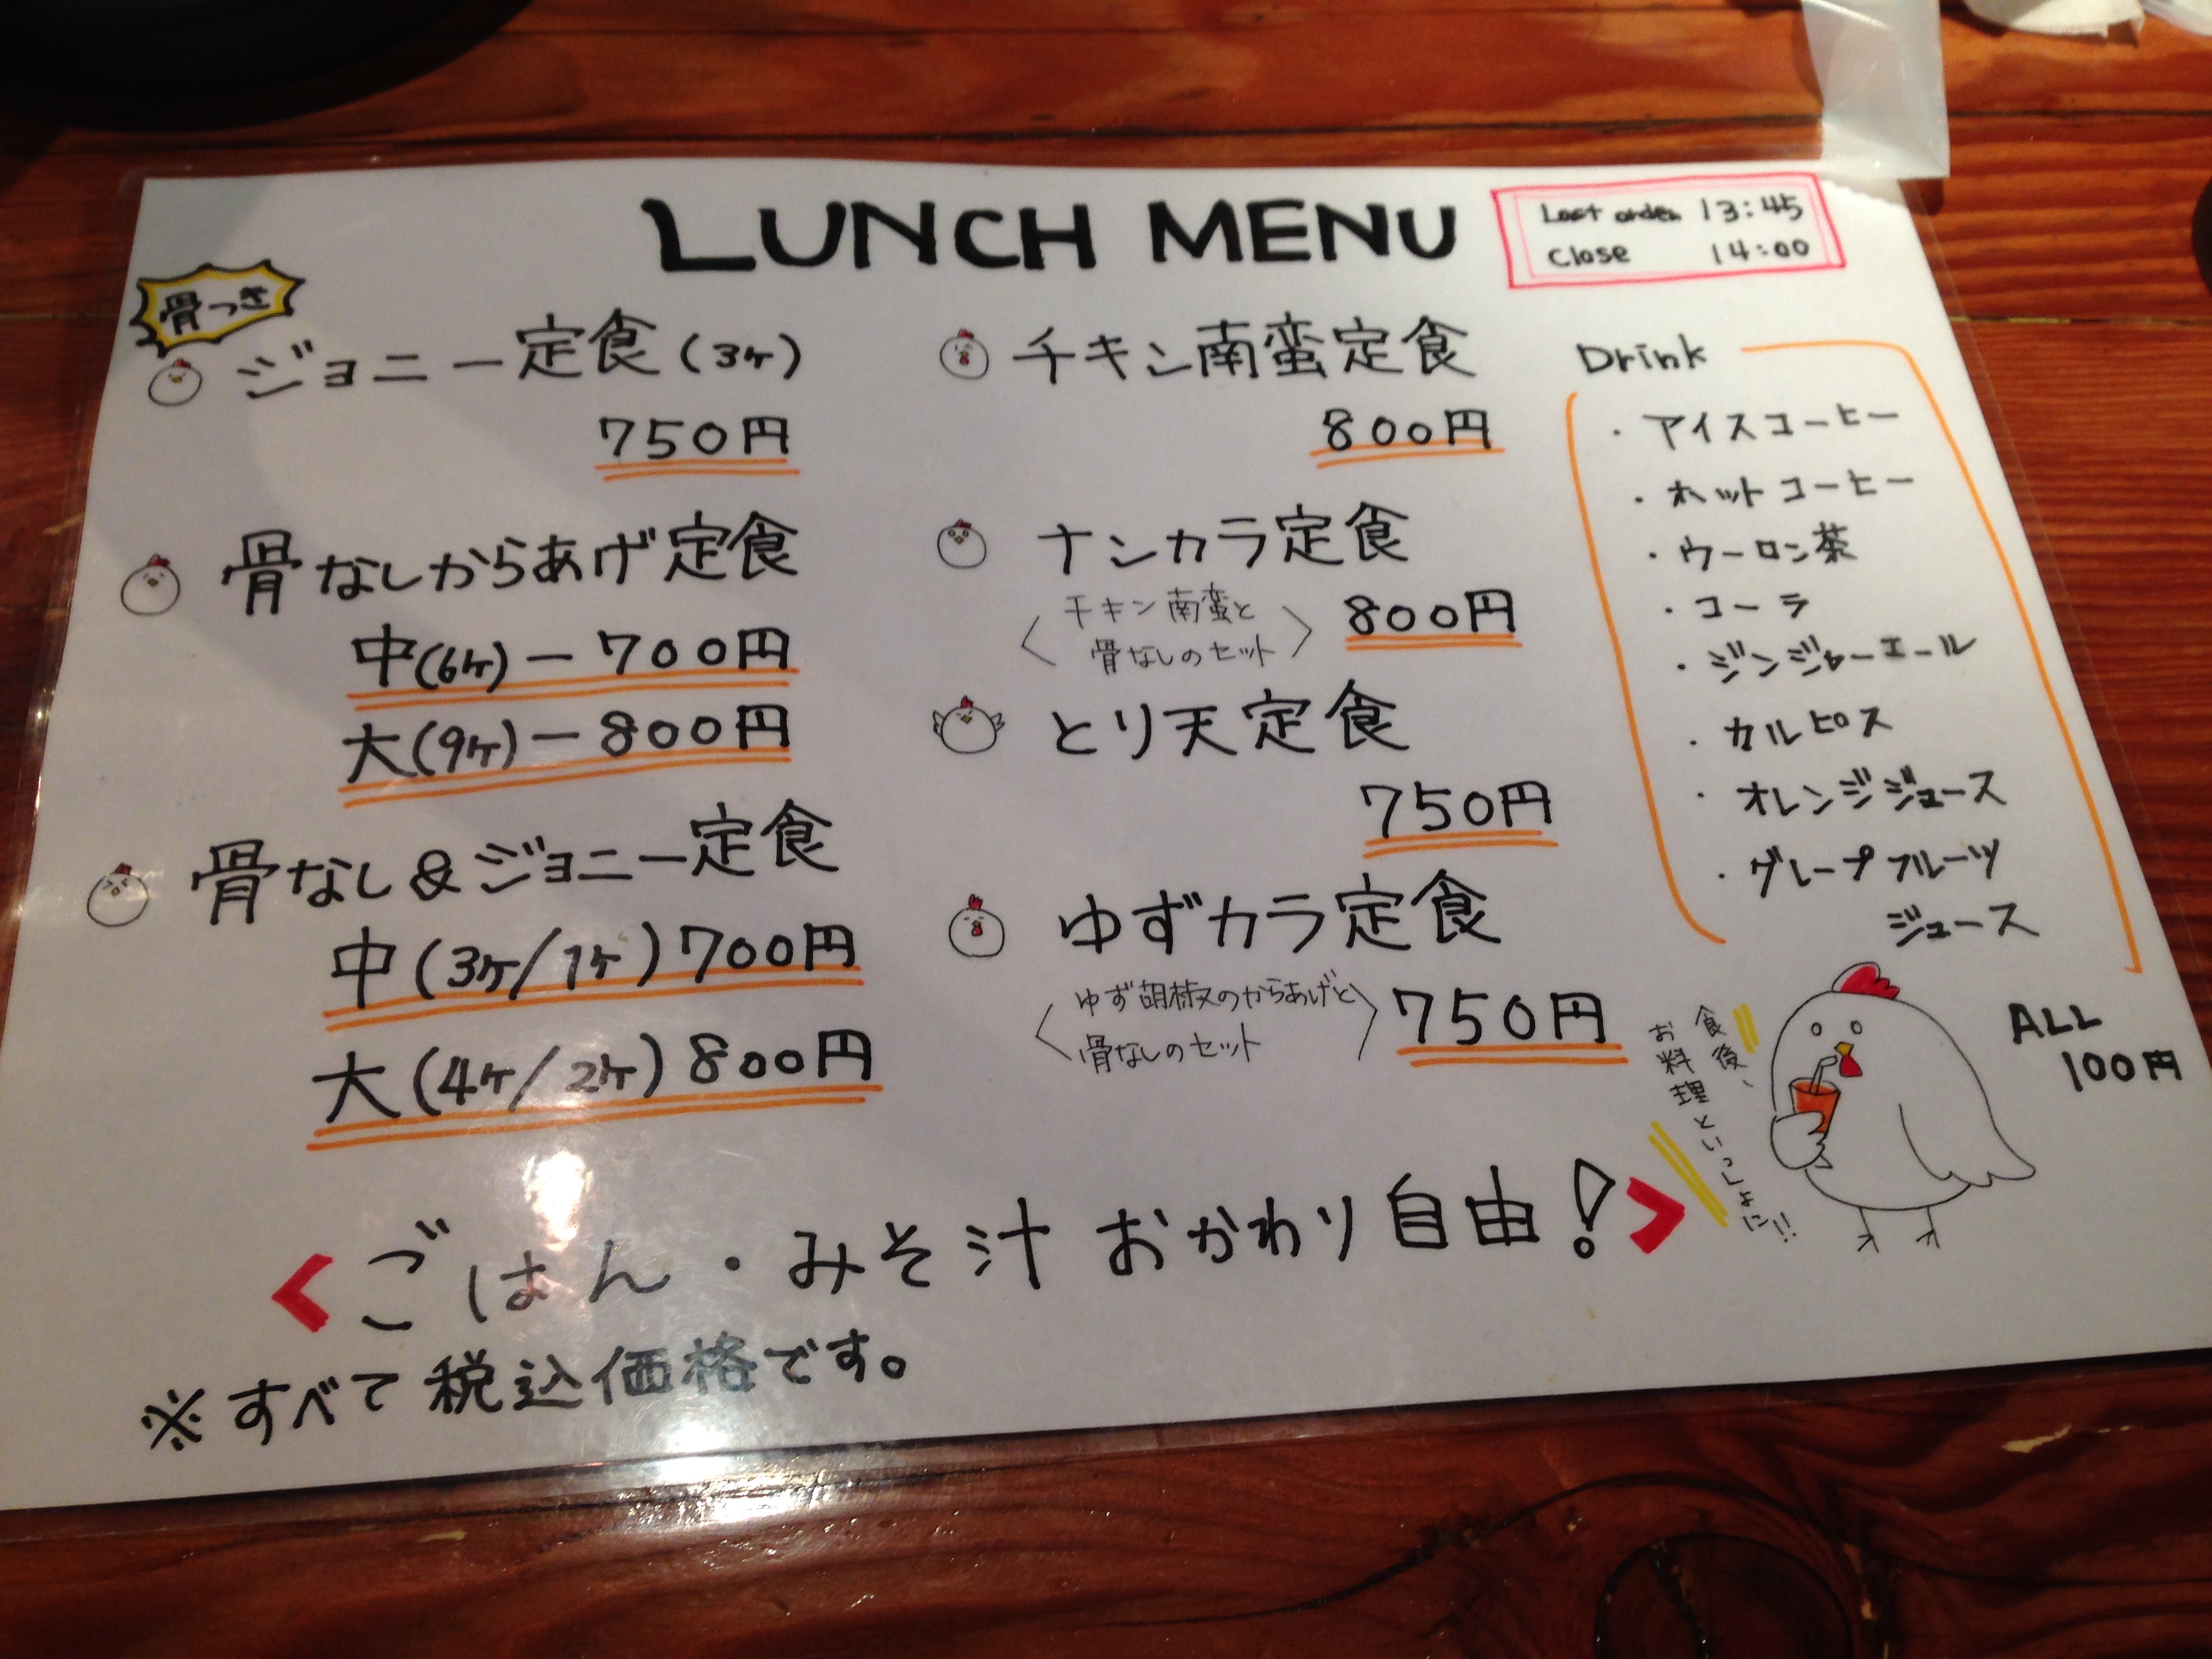 LUNCH MENU
Last order 13:45
Close 14:00
骨つき
ジョニー定食(3ヶ)
750円
骨なしからあげ定食
中(6ヶ)ー700円
大(9ヶ)ー800円
骨なし&ジョニー定食
中(3ヶ/1ヶ)700円
大(4ヶ/2ヶ)800円
チキン南蛮定食
800円
ナンカラ定食
〈チキン南蛮と
骨なしのセット〉
800円
とり天定食
750円
ゆずカラ定食
〈ゆず胡椒のからあげと
骨なしのセット〉
750円
Drink
・アイスコーヒー
・ホットコーヒー
・ウーロン茶
・コーラ
・ジンジャーエール
・カルピス
・オレンジジュース
・グレープフルーツ
ジュース
ALL
100円
食後、
お料理といっしょに!!
<ごはん・みそ汁 おかわり自由!>
※すべて税込価格です。